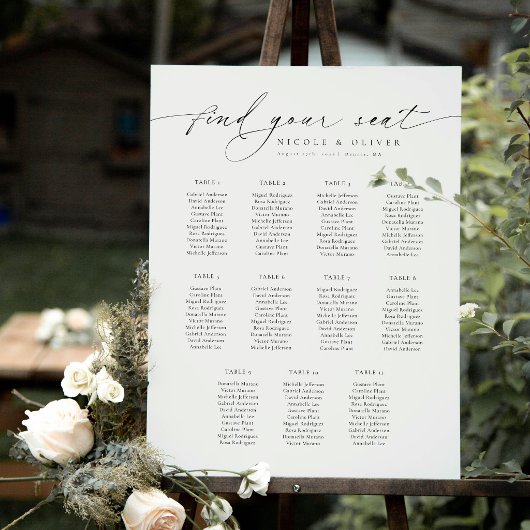 find your seat
NICOLE & OLIVER
TABLE 1
Gabriel Anderson
David Anderson
Annabelle Lee
Gustave Plant
Caroline Plant
Miguel Rodrigues
Rosa Rodrigues
Donatella Murano
Victor Murano
Michelle Jefferson
TABLE 2
Miguel Rodrigues
Rosa Rodrigues
Donatella Murano
Victor Murano
Michelle Jefferson
Gabriel Anderson
David Anderson
Annabelle Lee
Gustave Plant
Caroline Plant
TABLE 3
Michelle Jefferson
Gabriel Anderson
David Anderson
Annabelle Lee
Gustave Plant
Caroline Plant
Miguel Rodrigues
Rosa Rodrigues
Donatella Murano
Victor Murano
Gustave Plant
Caroline Plant
Miguel Rodrigues
Rosa Rodrigues
Donatella Murano
Victor Murano
Michelle Jefferson
Gabriel Anderson
David Anderson
Annabelle Lee
TABLE 5
Gustave Plant
Caroline Plant
Miguel Rodrigues
Rosa Rodrigues
Donatella Murano
Victor Murano
Michelle Jefferson
Gabriel Anderson
David Anderson
Annabelle Lee
TABLE 6
Gabriel Anderson
David Anderson
Annabelle Lee
Gustave Plant
Caroline Plant
Miguel Rodrigues
Rosa Rodrigues
Donatella Murano
Victor Murano
Michelle Jefferson
TABLE 7
Miguel Rodrigues
Rosa Rodrigues
Donatella Murano
Victor Murano
Michelle Jefferson
Gabriel Anderson
David Anderson
Annabelle Lee
Gustave Plant
Caroline Plant
TABLE 8
Annabelle Lee
Gustave Plant
Caroline Plant
Miguel Rodrigues
Rosa Rodrigues
Donatella Murano
Victor Murano
Michelle Jefferson
Gabriel Anderson
David Anderson
TABLE 9
Donatella Murano
Victor Murano
Michelle Jefferson
Gabriel Anderson
David Anderson
Annabelle Lee
Gustave Plant
Caroline Plant
Miguel Rodrigues
Rosa Rodrigues
TABLE 10
Michelle Jefferson
Gabriel Anderson
David Anderson
Annabelle Lee
Gustave Plant
Caroline Plant
Miguel Rodrigues
Rosa Rodrigues
Donatella Murano
Victor Murano
TABLE 11
Gustave Plant
Caroline Plant
Miguel Rodrigues
Rosa Rodrigues
Donatella Murano
Victor Murano
Michelle Jefferson
Gabriel Anderson
David Anderson
Annabelle Lee